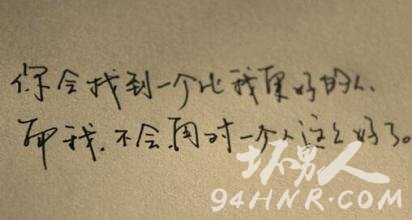 你会找到一个比我更好的人、
而我.不会再对一个人这么好了。
坏男人
94HNR.COM